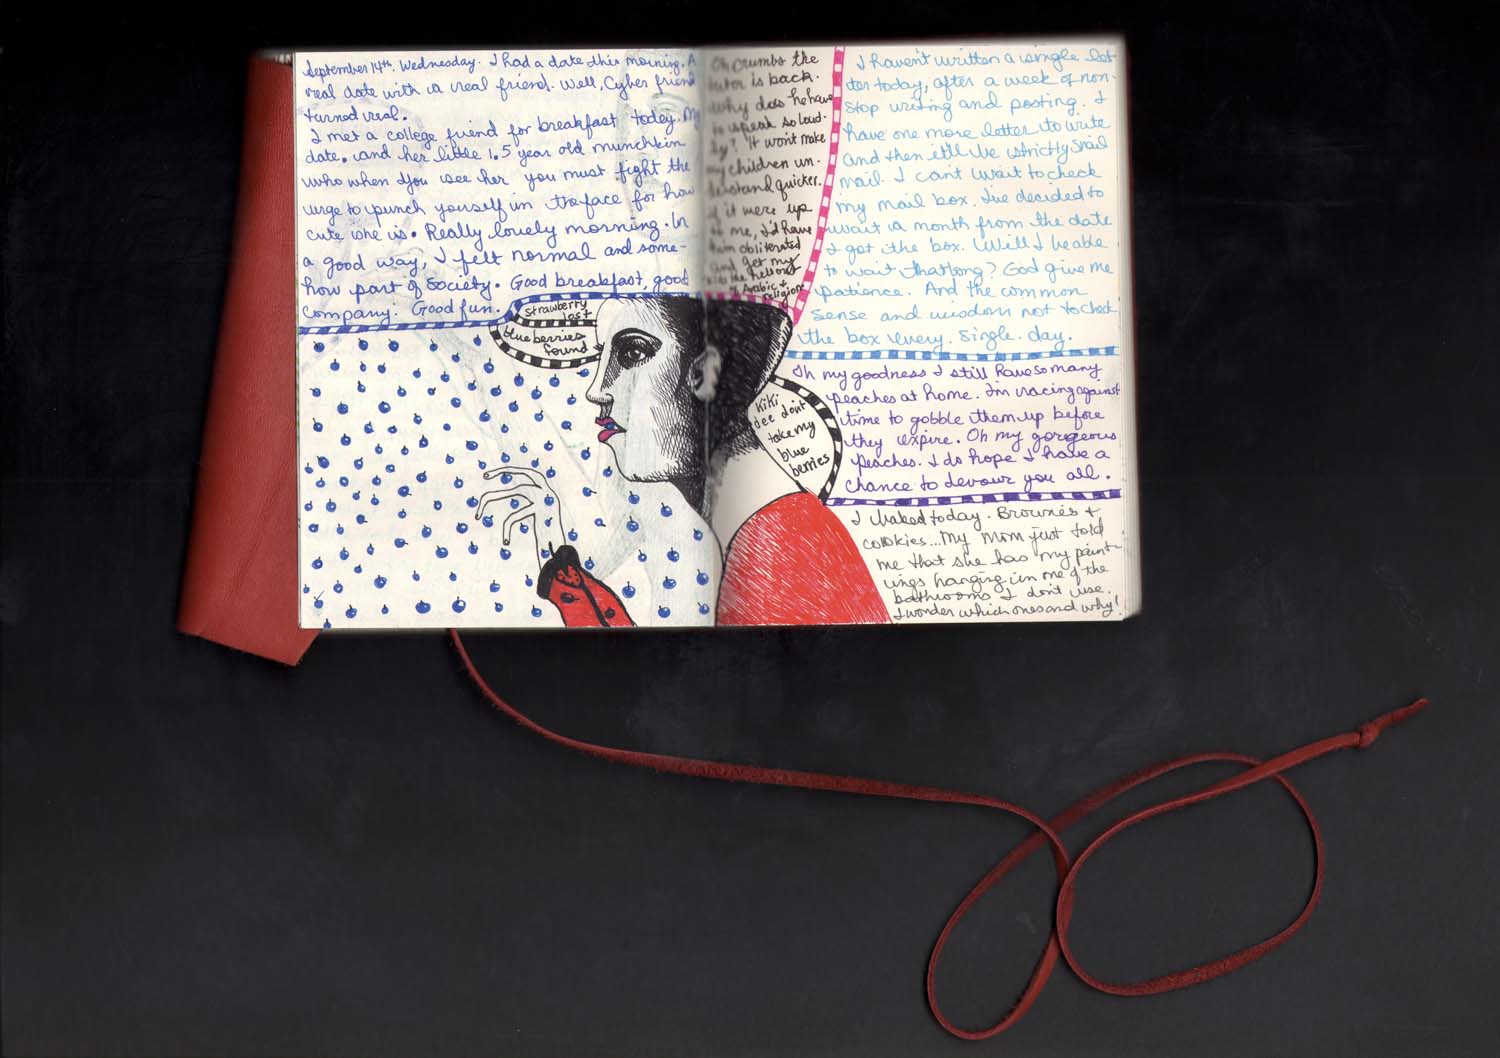 September 14th, Wednesday. I had a date this morning. A
real date with a real friend. Well, Cyber friend
turned real.
I met a college friend for breakfast today. My
date. and her little 1.5 year old munchkin
who when you see her you must fight the
urge to punch yourself in the face for how
cute she is. Really lovely morning. In
a good way, I felt normal and some-
how part of society. Good breakfast, good
company. Good fun.
strawberry
lost
blueberries
found
Oh crumbs the
tutor is back.
Why does he have
to speak so loud-
ly? It won't make
my children un-
derstand quicker.
if it were up
to me, I'd have
him obliterated
and get my
kids the hell out
of Arabic +
religion
I haven't written a single let-
ter today, after a week of non-
stop writing and posting. I
have one more letter to write
and then it'll be strictly snail
mail. I can't wait to check
my mail box. I've decided to
wait a month from the date
I got the box. Will I be able
to wait that long? God give me
patience. And the common
sense and wisdom not to check
the box every. single. day.
Oh my goodness I still have so many
peaches at home. I'm racing against
time to gobble them up before
they expire. Oh my gorgeous
peaches. I do hope I have a
chance to devour you all.
Kiki
dee don't
take my
blue
berries
I baked today. Brownies +
cookies... My Mom just told
me that she has my paint-
ings hanging in one of the
bathrooms I don't use.
I wonder which ones and why!